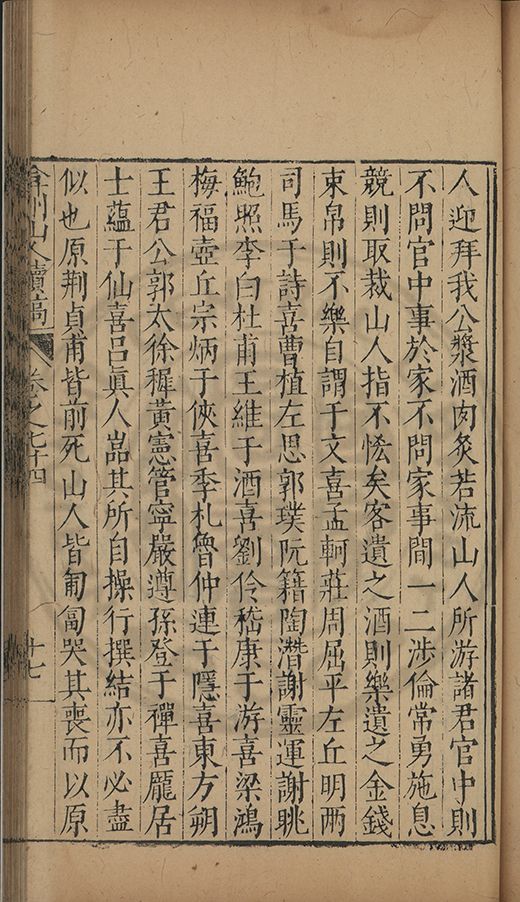 人迎拜我公漿酒肉炙若流山人所游諸君官中則
不問官中事於家不問家事間一二涉倫常勇施息
競則取裁山人指不恡矣客遺之酒則樂遺之金錢
束帛則不樂自謂于文喜孟軻莊周屈平左丘明兩
司馬于詩喜曹植左思郭璞阮籍陶潛謝靈運謝眺
鮑照李白杜甫王維于酒喜劉伶嵇康于游喜梁鴻
梅福壺丘宗炳于俠喜季札魯仲連于隱喜東方朔
王君公郭太徐穉黃憲管寧嚴遵孫登于禪喜龐居
士蘊于仙喜呂眞人嵓其所自操行撰結亦不必盡
似也原荆貞甫皆前死山人皆匍匐哭其喪而以原
弇州山人續稿 卷之七十四 十七